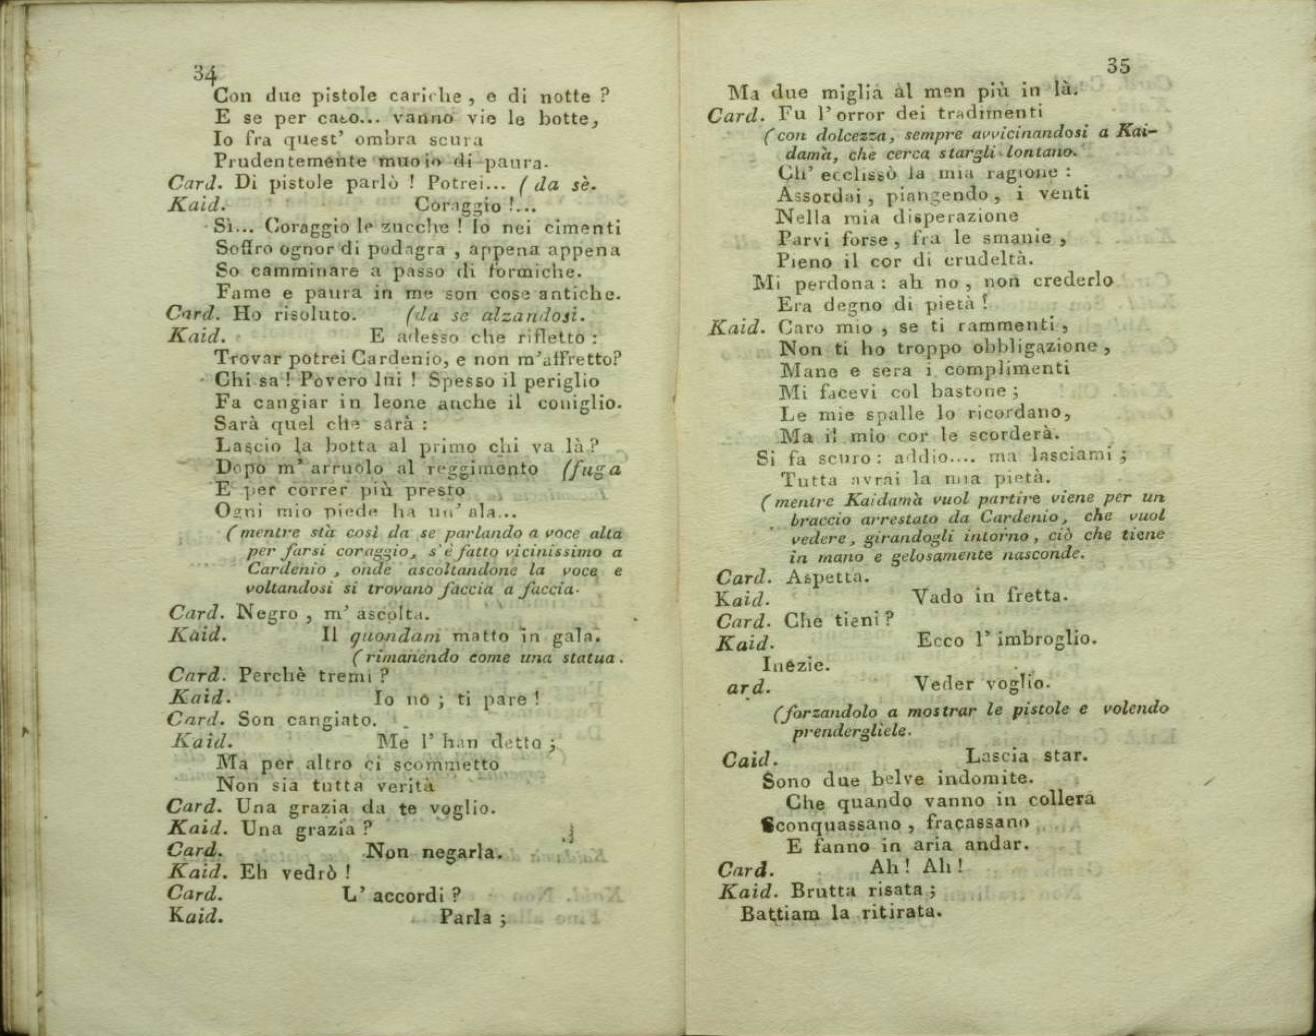 34
Con due pistole cariche, e di notte?
E se per caso... vanno vie le botte,
Io fra quest' ombra scura
Prudentemente muoio di paura.
Card. Di pistole parlò! Potrei... (da sè.
Kaid. Coraggio!...
Sì... Coraggio le zucche! Io nei cimenti
Soffro ognor di podagra, appena appena
So camminare a passo di formiche.
Fame e paura in me son cose antiche.
Card. Ho risoluto. (da se alzandosi.
Kaid. E adesso che rifletto:
Trovar potrei Cardenio, e non m'affretto?
Chi sa! Povero lui! Spesso il periglio
Fa cangiar in leone anche il coniglio.
Sarà quel che sarà:
Lascio la botta al primo chi va là?
Dopo m' arruolo al reggimento (fuga
E per correr più presto
Ogni mio piede ha un' ala...
(mentre stà così da se parlando a voce alta
per farsi coraggio, s'è fatto vicinissimo a
Cardenio, onde ascoltandone la voce e
voltandosi si trovano faccia a faccia.
Card. Negro, m' ascolta.
Kaid. Il quondam matto in gala.
(rimanendo come una statua.
Card. Perchè tremi?
Kaid. Io no; ti pare!
Card. Son cangiato.
Kaid. Me l' han detto;
Ma per altro ci scommetto
Non sia tutta verità
Card. Una grazia da te voglio.
Kaid. Una grazia?
Card. Non negarla.
Kaid. Eh vedrò!
Card. L' accordi?
Kaid. Parla;
35
Ma due miglia al men più in là.
Card. Fu l'orror dei tradimenti
(con dolcezza, sempre avvicinandosi a Kai-
damà, che cerca stargli lontano.
Ch' ecclissò la mia ragione:
Assordai, piangendo, i venti
Nella mia disperazione
Parvi forse, fra le smanie,
Pieno il cor di crudeltà.
Mi perdona: ah no, non crederlo
Era degno di pietà!
Kaid. Caro mio, se ti rammenti,
Non ti ho troppo obbligazione,
Mane e sera i complimenti
Mi facevi col bastone;
Le mie spalle lo ricordano,
Ma il mio cor le scorderà.
Si fa scuro: addio.... ma lasciami;
Tutta avrai la mia pietà.
(mentre Kaidamà vuol partire viene per un
braccio arrestato da Cardenio, che vuol
vedere, girandogli intorno, ciò che tiene
in mano e gelosamente nasconde.
Card. Aspetta.
Kaid. Vado in fretta.
Card. Che tieni?
Kaid. Ecco l' imbroglio.
Inezie.
ard. Veder voglio.
(forzandolo a mostrar le pistole e volendo
prendergliele.
Caid. Lascia star.
Sono due belve indomite.
Che quando vanno in collera
Sconquassano, fracassano
E fanno in aria andar.
Card. Ah! Ah!
Kaid. Brutta risata;
Battiam la ritirata.